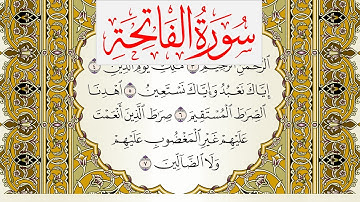 سُورَةُ الفَاتِحَة
ٱلرَّحْمَٰنِ ٱلرَّحِيمِ ٣ مَٰلِكِ يَوْمِ ٱلدِّينِ ٤
إِيَّاكَ نَعْبُدُ وَإِيَّاكَ نَسْتَعِينُ ٥ ٱهْدِنَا
ٱلصِّرَٰطَ ٱلْمُسْتَقِيمَ ٦ صِرَٰطَ ٱلَّذِينَ أَنْعَمْتَ
عَلَيْهِمْ غَيْرِ ٱلْمَغْضُوبِ عَلَيْهِمْ
وَلَا ٱلضَّآلِّينَ ٧